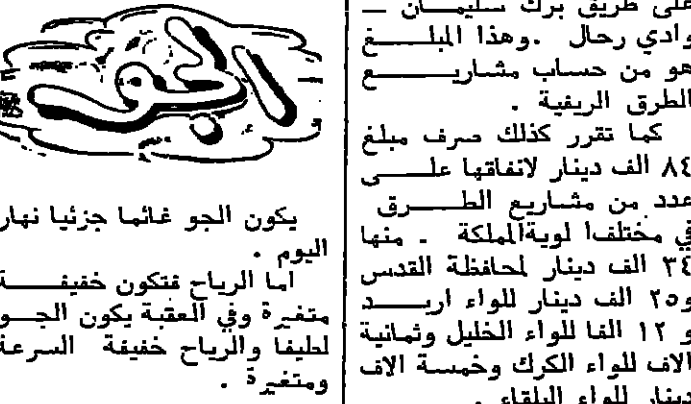 على طريق برك سليمان –
وادي رحال . وهذا المبلغ
هو من حساب مشاريع
الطرق الريفية .
كما تقرر كذلك صرف مبلغ
٨٤ الف دينار لانفاقها على
عدد من مشاريع الطرق
في مختلفا لويةالمملكة . منها
٣٤ الف دينار لمحافظة القدس
و٢٥ الف دينار للواء اربد
و ١٢ الفا للواء الخليل وثمانية
الاف للواء الكرك وخمسة الاف
دينار للواء البلقاء .
الجو
يكون الجو غائما جزئيا نهار
اليوم .
اما الرياح فتكون خفيفة
متغيرة وفي العقبة يكون الجو
لطيفا والرياح خفيفة السرعة
ومتغيرة .